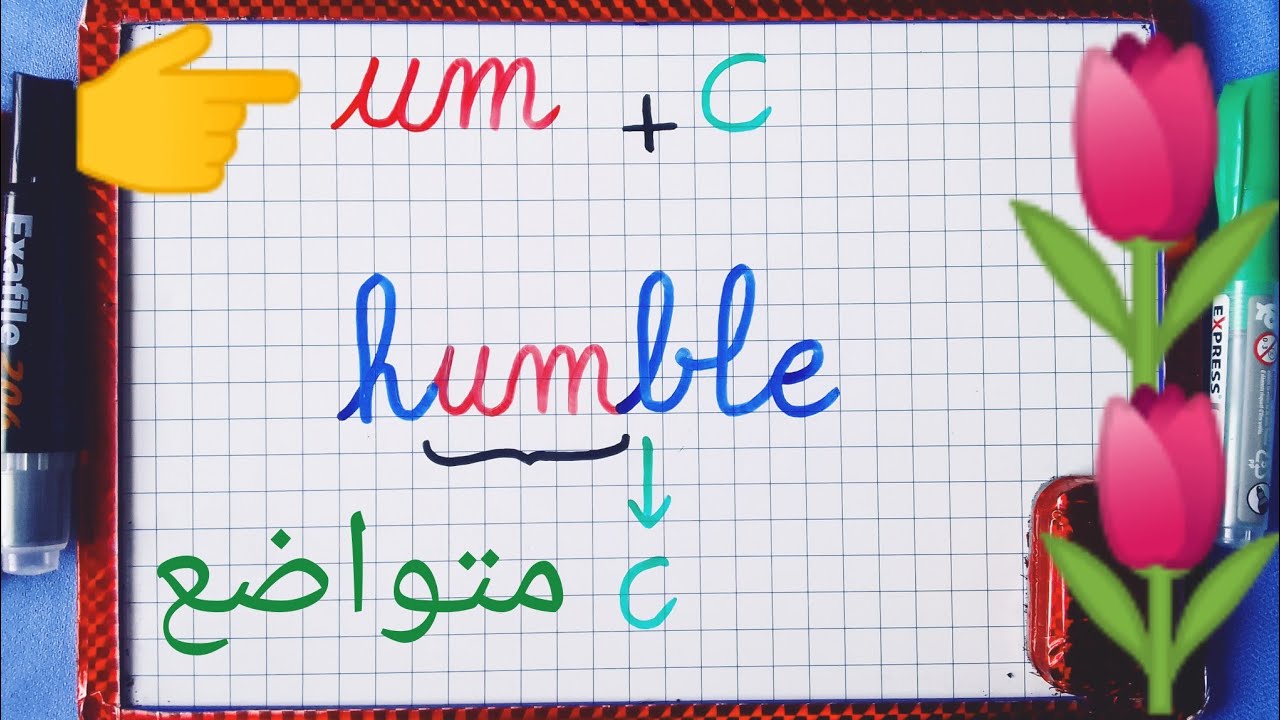 um + C
humble
متواضع C
Exafile 206
EXPRESS